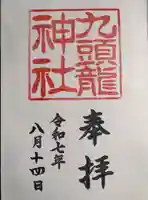 九頭龍
神社
奉拝
令和七年
八月十四日